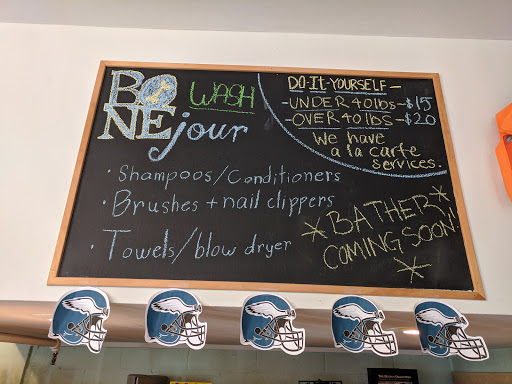 BO
NE jour
WASH
DO-IT-YOURSELF—
-UNDER 40 lbs-$15
-OVER 40 lbs-$20
We have
a la carte
services.
· Shampoos/Conditioners
· Brushes + nail clippers
· Towels/blow dryer
BATHER
COMING SOON!